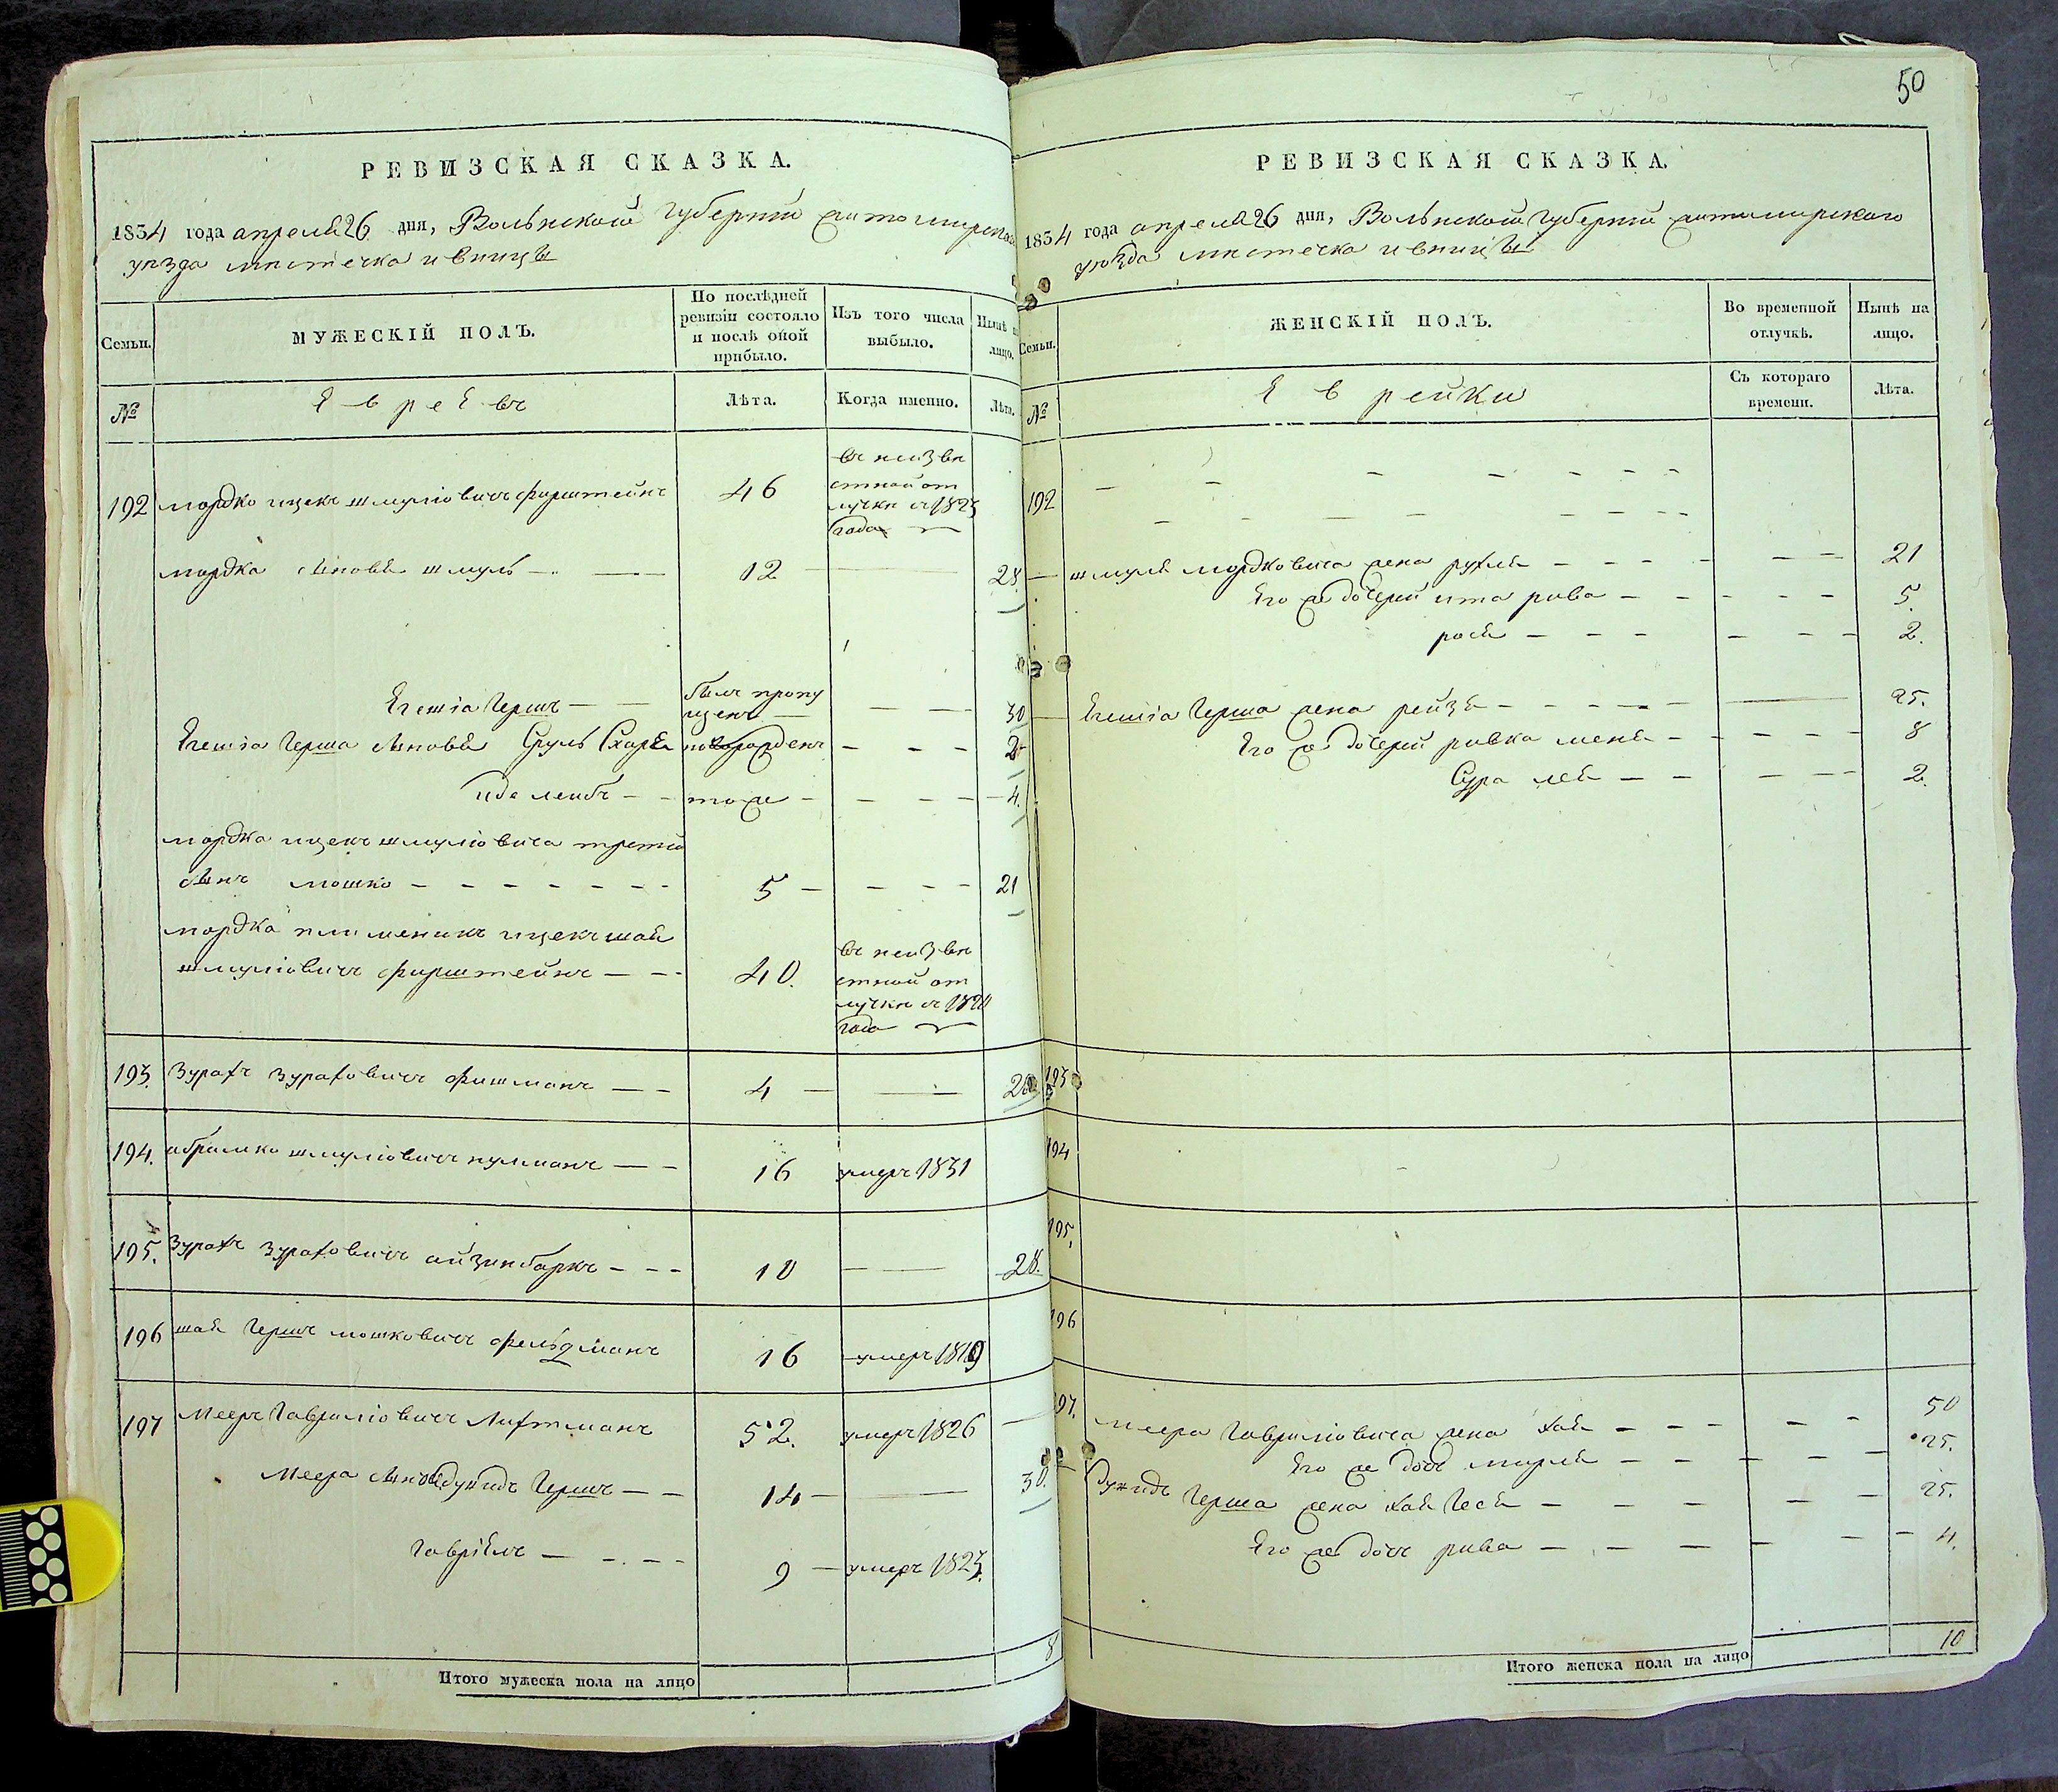 РЕВИЗСКАЯ СКАЗКА.
1834 года апреля 26 дня, Волынской Губернии Житомирского
уезда местечка ивницы
Семьи.
МУЖЕСКІЙ ПОЛЪ.
По послѣдней
ревизіи состояло
и послѣ оной
прибыло.
Изъ того числа
выбыло.
Нынѣ на
лицо.
№
Евреевъ
Лѣта.
Когда именно.
Лѣта.
192 мордко ицекъ шмулiовичъ фирштейнъ 46
въ неизве
стной от
лучки съ 1823
года
мордка сыновья шмуль — 12 — 28
Егешiа Герша — былъ пропу
щенъ — 30
Егешiа Герша сыновья Сруль Схаръя новорожденъ — 2
иде лейбъ — тоже — 4.
мордка ицекъ шмулiовича третiй
сынъ мошко — 5 — 21
мордка племеникъ ицекъ шая
шмулiовичъ фирштейнъ — 40.
въ неизве
стной от
лучки съ 1820
года
193. Зурахъ Зураховичъ фишманъ — 4 — 20
194. абрамко шмулiовичъ кулманъ — 16 умеръ 1831
195. Зурахъ Зураховичъ айзинбаркъ — 10 — 28.
196 шая Гершъ мошковичъ фельдманъ 16 умеръ 1819
197 Мееръ Гаврилiовичъ Лихтманъ 52. умеръ 1826
Меера сыновья Гершъ — 14 — 30.
Гаврiелъ — 9 — умеръ 1823.
Итого мужеска пола на лицо 8
50
РЕВИЗСКАЯ СКАЗКА.
1834 года апреля 26 дня, Волынской Губернии Житомирского
уезда местечка ивницы
Семьи.
ЖЕНСКІЙ ПОЛЪ.
Во временной
отлучкѣ.
Нынѣ на
лицо.
№
Еврейки
Съ котораго
времени.
Лѣта.
192
шмуля мордковича жена рухля — 21
Его же дочери ита рива — 5.
рося — 2.
Егешiа Герша жена рейзя — 25.
Его же дочери ривка меня — 8
Сура лея — 2.
193
194
195.
196
197. меера Гаврилiовича жена хая — 50
Его же дочь миря — 25.
Герша жена хая Гася — 25.
Его же дочь рива — 4.
Итого женска пола на лицо 10